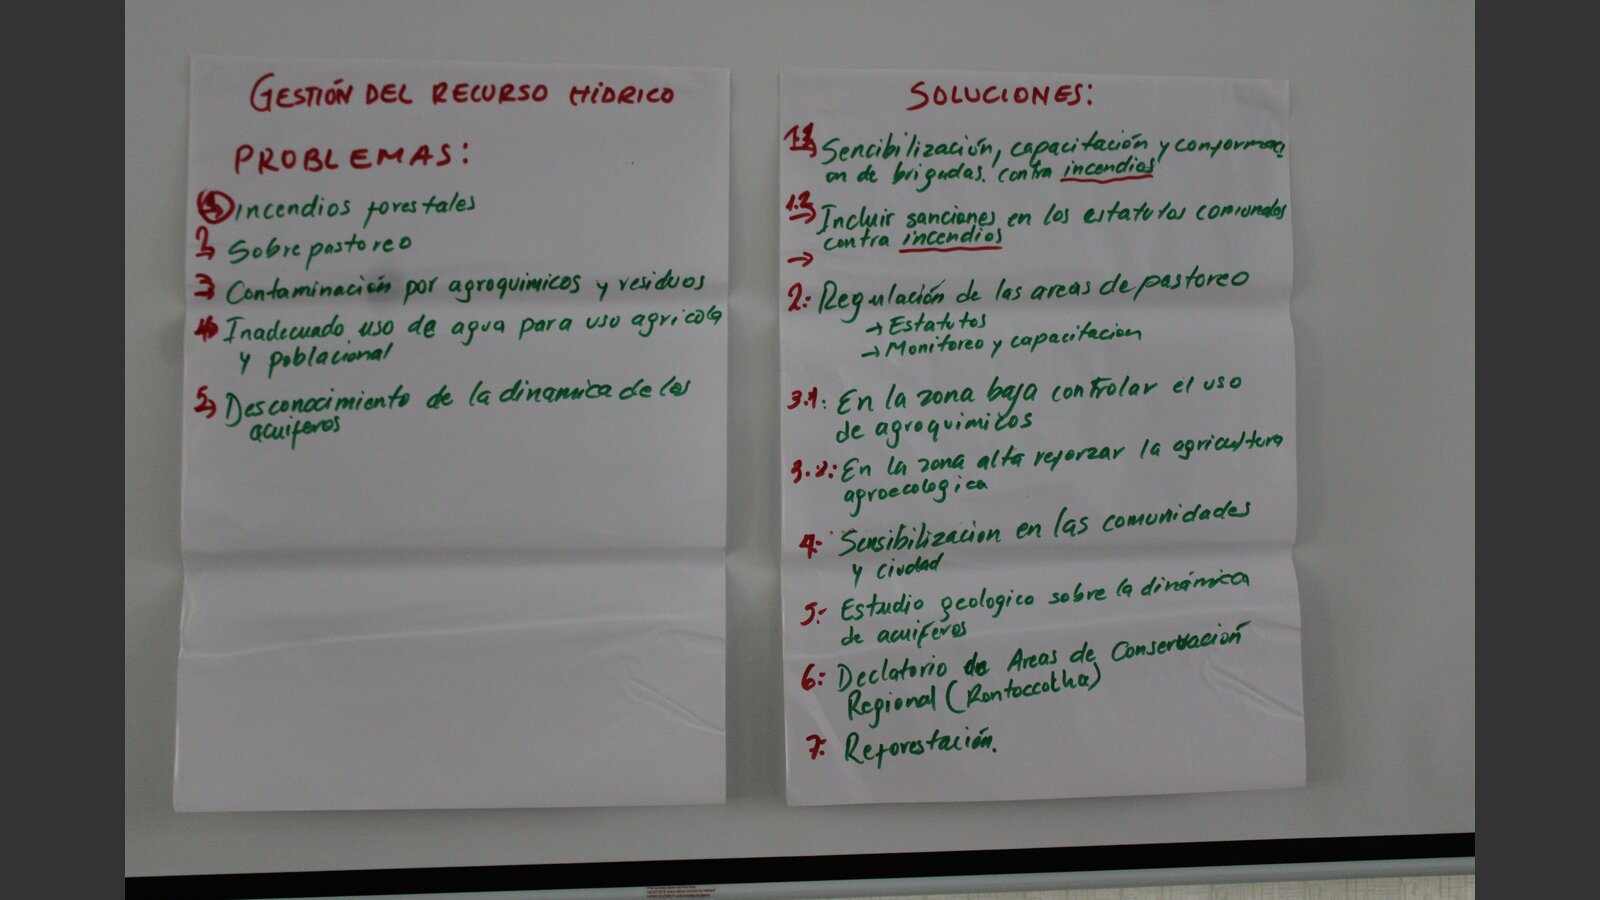 GESTIÓN DEL RECURSO HÍDRICO
PROBLEMAS:
1) Incendios forestales
2) Sobrepastoreo
3) Contaminación por agroquimicos y residuos
4) Inadecuado uso de agua para uso agricola
y poblacional
5) Desconocimiento de la dinamica de los
acuiferos
SOLUCIONES:
1.1) Sencibilización, capacitación y conformaci
on de brigadas. contra incendios
1.2) Incluir sanciones en los estatutos comunales
contra incendios
→
2: Regulación de las areas de pastoreo
→ Estatutos
→ Monitoreo y capacitacion
3.1: En la zona baja controlar el uso
de agroquimicos
3.2: En la zona alta reforzar la agricultura
agroecologica
4- Sensibilizacion en las comunidades
y ciudad
5- Estudio geologico sobre la dinámica
de acuiferos
6: Declatorio de Areas de Conservación
Regional (Rontoccocha)
7: Reforestación.